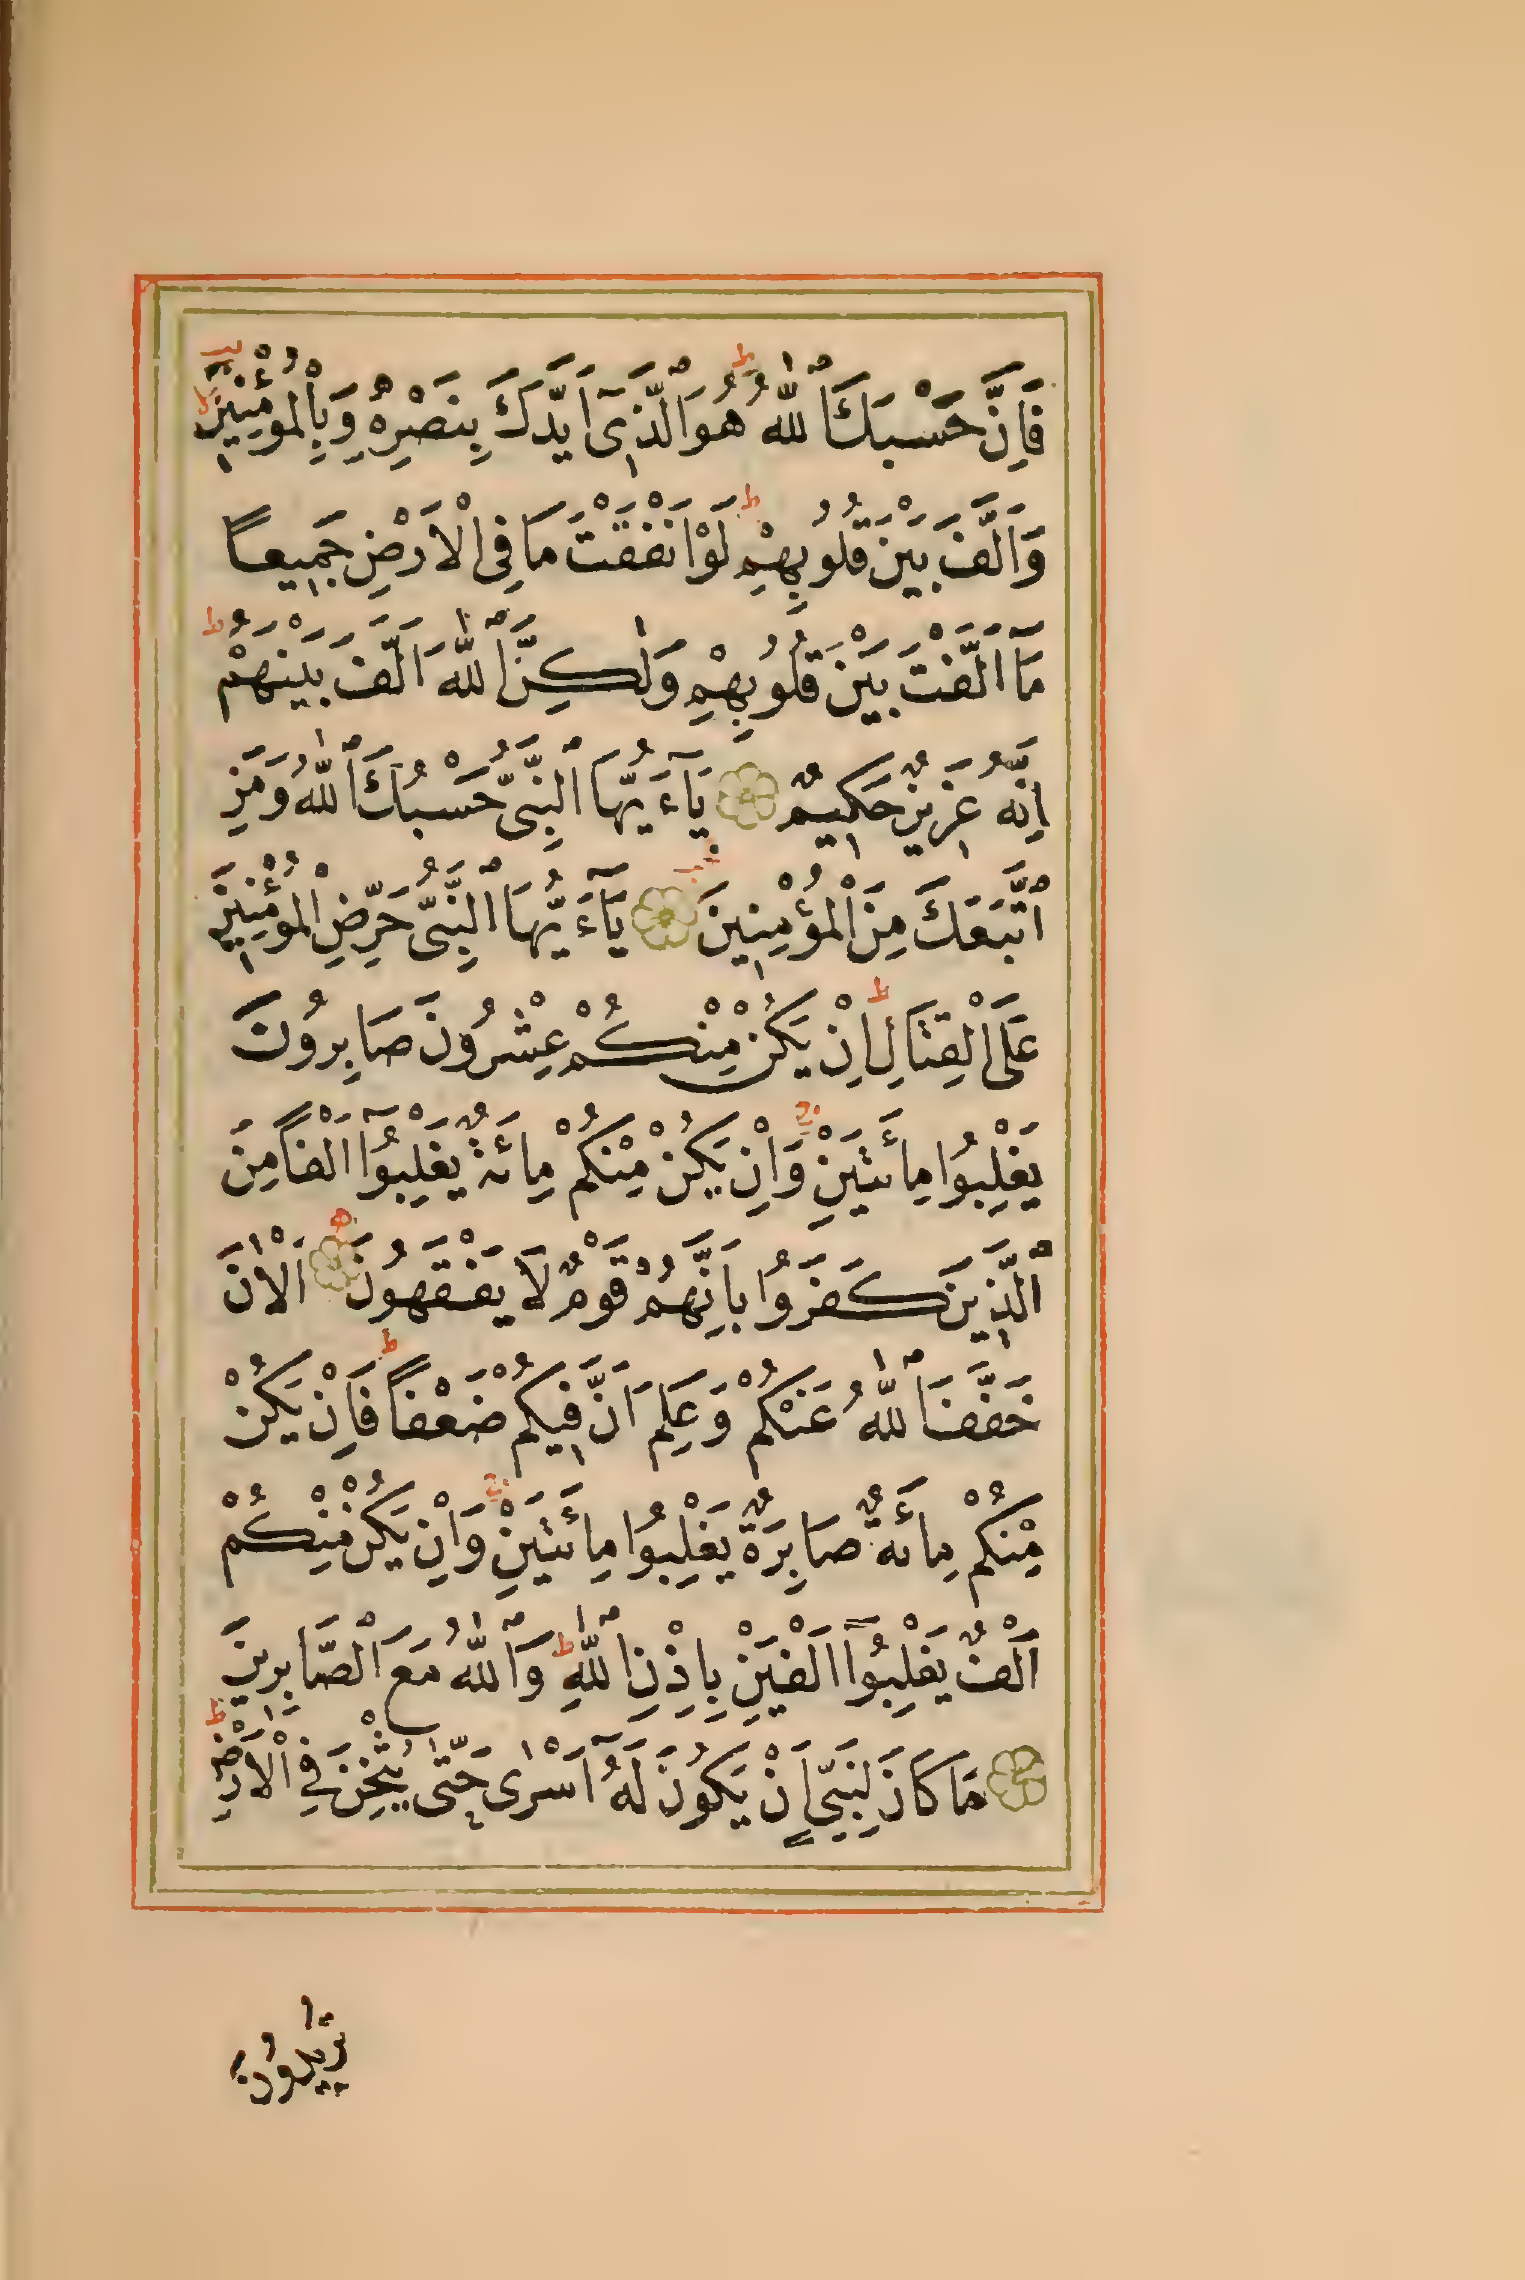 فَاِنَّ حَسْبَكَ ٱللّٰهُ ط هُوَ ٱلَّذِىٓ اَيَّدَكَ بِنَصْرِهٖ وَبِالْمُؤْمِنِينَ لا
وَاَلَّفَ بَيْنَ قُلُوبِهِمْ ط لَوْ اَنْفَقْتَ مَا فِى الْاَرْضِ جَمِيعًا
مَآ اَلَّفْتَ بَيْنَ قُلُوبِهِمْ وَلٰكِنَّ ٱللّٰهَ اَلَّفَ بَيْنَهُمْ ط
اِنَّهُ عَزِيزٌ حَكِيمٌ يَآءَيُّهَا ٱلنَّبِىُّ حَسْبُكَ ٱللّٰهُ وَمَنِ
ٱتَّبَعَكَ مِنَ الْمُؤْمِنِينَ يَآءَيُّهَا ٱلنَّبِىُّ حَرِّضِ الْمُؤْمِنِينَ
عَلَى الْقِتَالِ ط اِنْ يَكُنْ مِنْكُمْ عِشْرُونَ صَابِرُونَ
يَغْلِبُوا مِائَتَيْنِ ج وَاِنْ يَكُنْ مِنْكُمْ مِائَةٌ يَغْلِبُوٓا اَلْفًا مِنَ
ٱلَّذِينَ كَفَرُوا بِاَنَّهُمْ قَوْمٌ لَا يَفْقَهُونَ اَلْاٰنَ
خَفَّفَ ٱللّٰهُ عَنْكُمْ وَعَلِمَ اَنَّ فِيكُمْ ضَعْفًا ط فَاِنْ يَكُنْ
مِنْكُمْ مِائَةٌ صَابِرَةٌ يَغْلِبُوا مِائَتَيْنِ ج وَاِنْ يَكُنْ مِنْكُمْ
اَلْفٌ يَغْلِبُوٓا اَلْفَيْنِ بِاِذْنِ ٱللّٰهِ ط وَٱللّٰهُ مَعَ الصَّابِرِينَ
مَا كَانَ لِنَبِىٍّ اَنْ يَكُونَ لَهُٓ اَسْرٰى حَتّٰى يُثْخِنَ فِى الْاَرْضِ ط